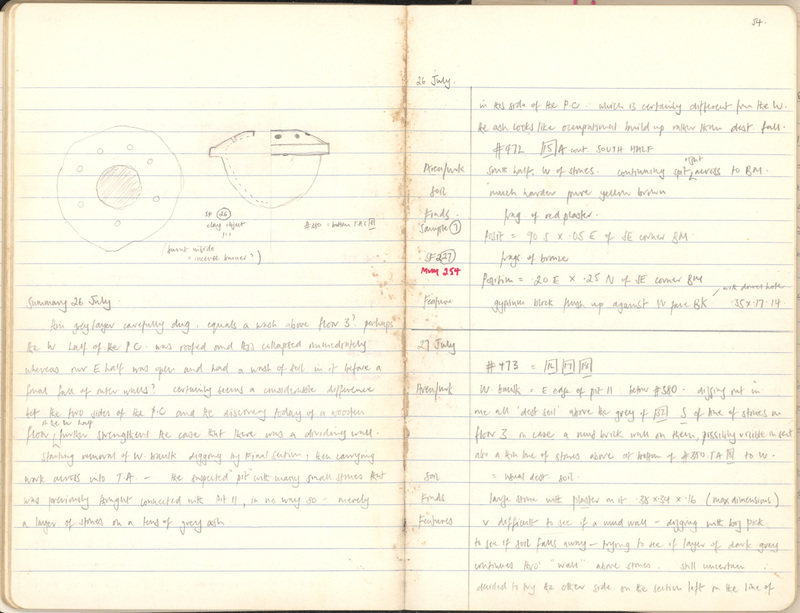 SF (26)
clay object
1:1
#380 = bottom TA
(burnt inside
= incense burner?)
Summary 26 July
thin grey layer carefully dug. equals a wash above floor 3? perhaps
the W half of the P.C. was roofed and this collapsed immediately
whereas our E half was open and had a wash of soil in it before a
final fall of outer walls? certainly seems a considerable difference
bet the two sides of the P.C and the discovery today of a wooden
in the W half
floor, further strengthens the case that there was a dividing wall.
Starting removal of W. baulk digging by final section, then carrying
work across into T.A – the suspected 'pit' with many small stones that
was previously thought connected with Pit 11, in no way so – merely
a layer of stones on a lens of grey ash
54.
26 July.
in this side of the P.C. which is certainly different from the W.
the ash looks like occupational build up rather than dest fall.
#472 [15]A cont. SOUTH HALF
Area/unk South half, W of stones. continuing spit right across to BM.
Soil much harder pure yellow brown
Finds frag of red plaster.
Sample (7)
Posit = 90 S × .05 E of SE corner BM.
SF 227 frags of bronze
MUM 254
Position = .20 E × .25 N of SE corner BM
with dowel hole
Feature gypsum block flush up against W face BK .35×.17.14
27 July
#473 =
Area/unk W baulk = E edge of pit 11, below #380. digging out in
one all 'dest soil' above the grey of S of line of stones on
floor 3 in case a mud brick wall on them, possibly visible in sect
also a thin line of stones above at bottom of #380. TA to W.
Soil = usual dest. soil
Finds large stone with plaster on it .38×34×.16 (max dimensions)
Features v difficult to see if a mud wall – digging with big pick
to see if soil falls away – trying to see if layer of dark grey
continues thro' "wall" above stones. still uncertain ∴
decided to try the other side on the section left on the line of